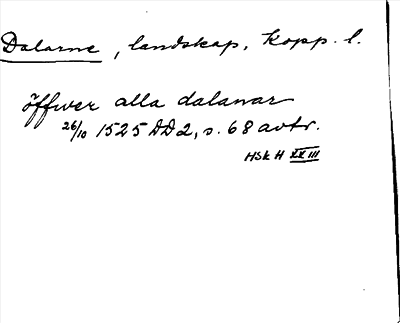 Dalarne, landskap, Kopp. l.
öffwer alla dalanar
26/10 1525 DD2, s. 68 avtr.
HSK H XXIII